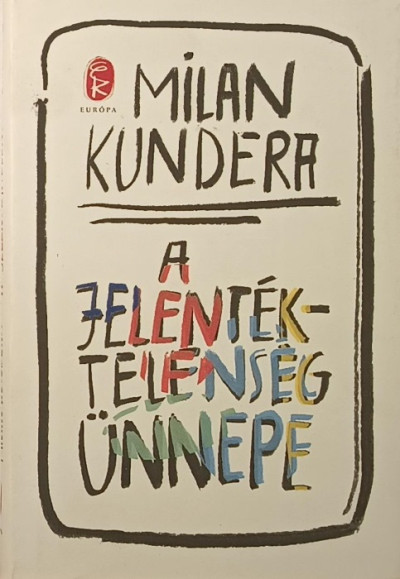 EK
EURÓPA
MILAN
KUNDERA
A
JELENTÉK-
TELENSÉG
ÜNNEPE